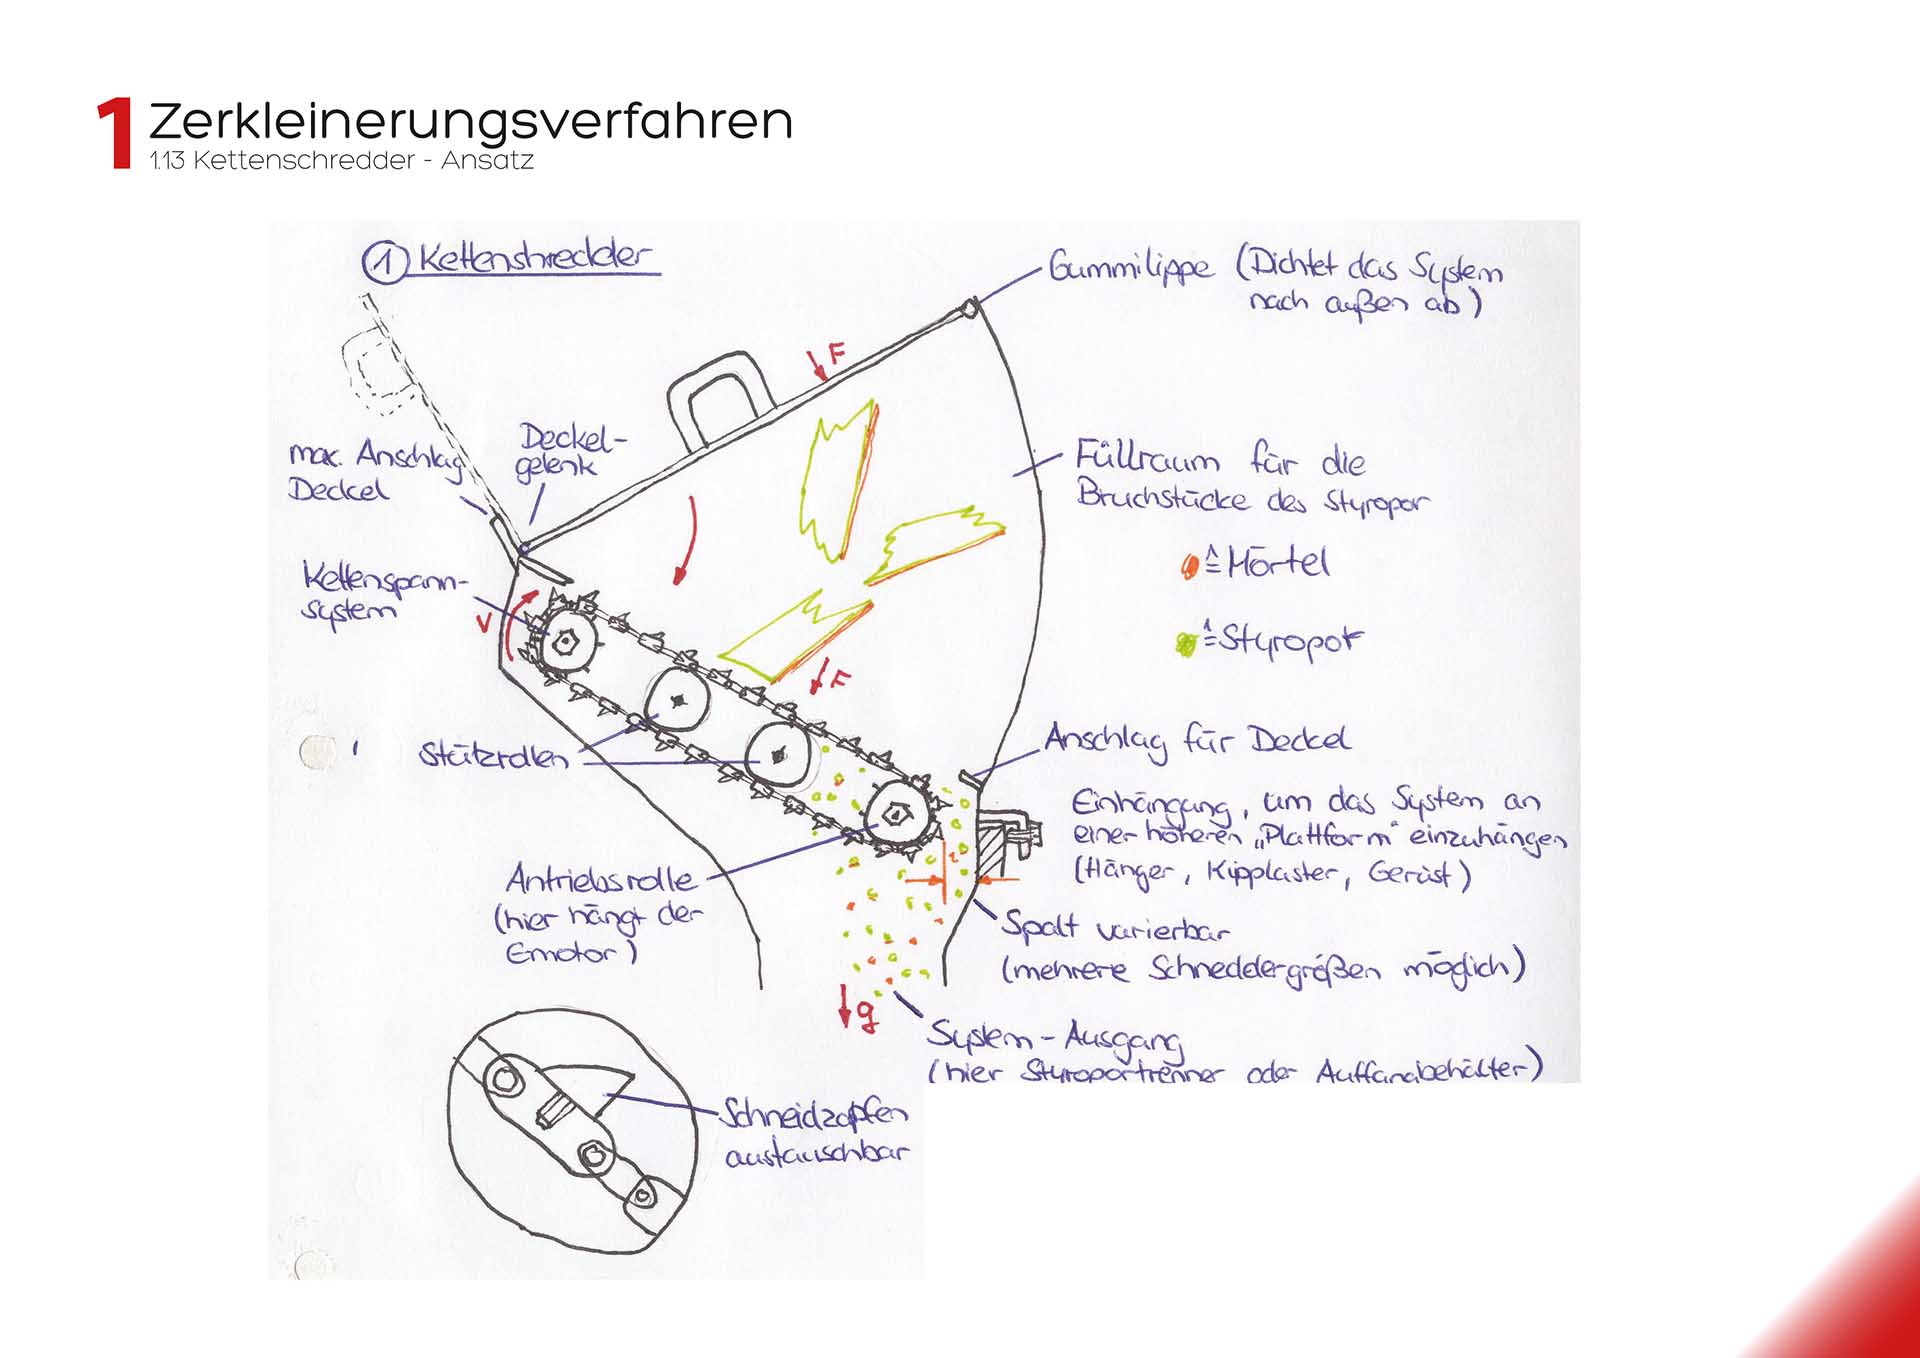 1 Zerkleinerungsverfahren
1.13 Kettenschredder - Ansatz
1 Kettenshredder
Gummilippe (Dichtet das System
nach außen ab)
F
max. Anschlag
Deckel
Deckel-
gelenk
Füllraum für die
Bruchstücke des Styropor
≙ Mörtel
≙ Styropor
Kettenspann-
system
V
F
Stützrollen
Anschlag für Deckel
Einhängung, um das System an
einer höheren „Plattform" einzuhängen
(Hänger, Kipplaster, Gerüst)
Antriebsrolle
(hier hängt der
Emotor)
Spalt varierbar
(mehrere Schneddergrößen möglich)
g
System-Ausgang
(hier Styroportrenner oder Auffangbehälter)
Schneidzapfen
austauschbar